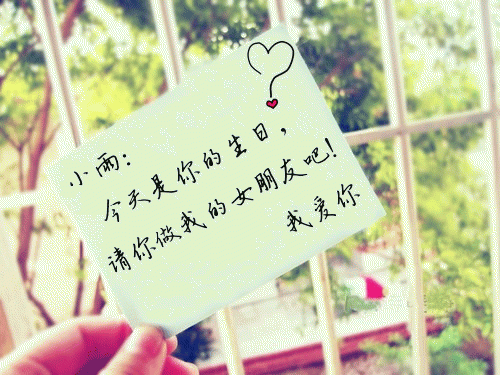 小雨：
今天是你的生日，
请你做我的女朋友吧！
我爱你